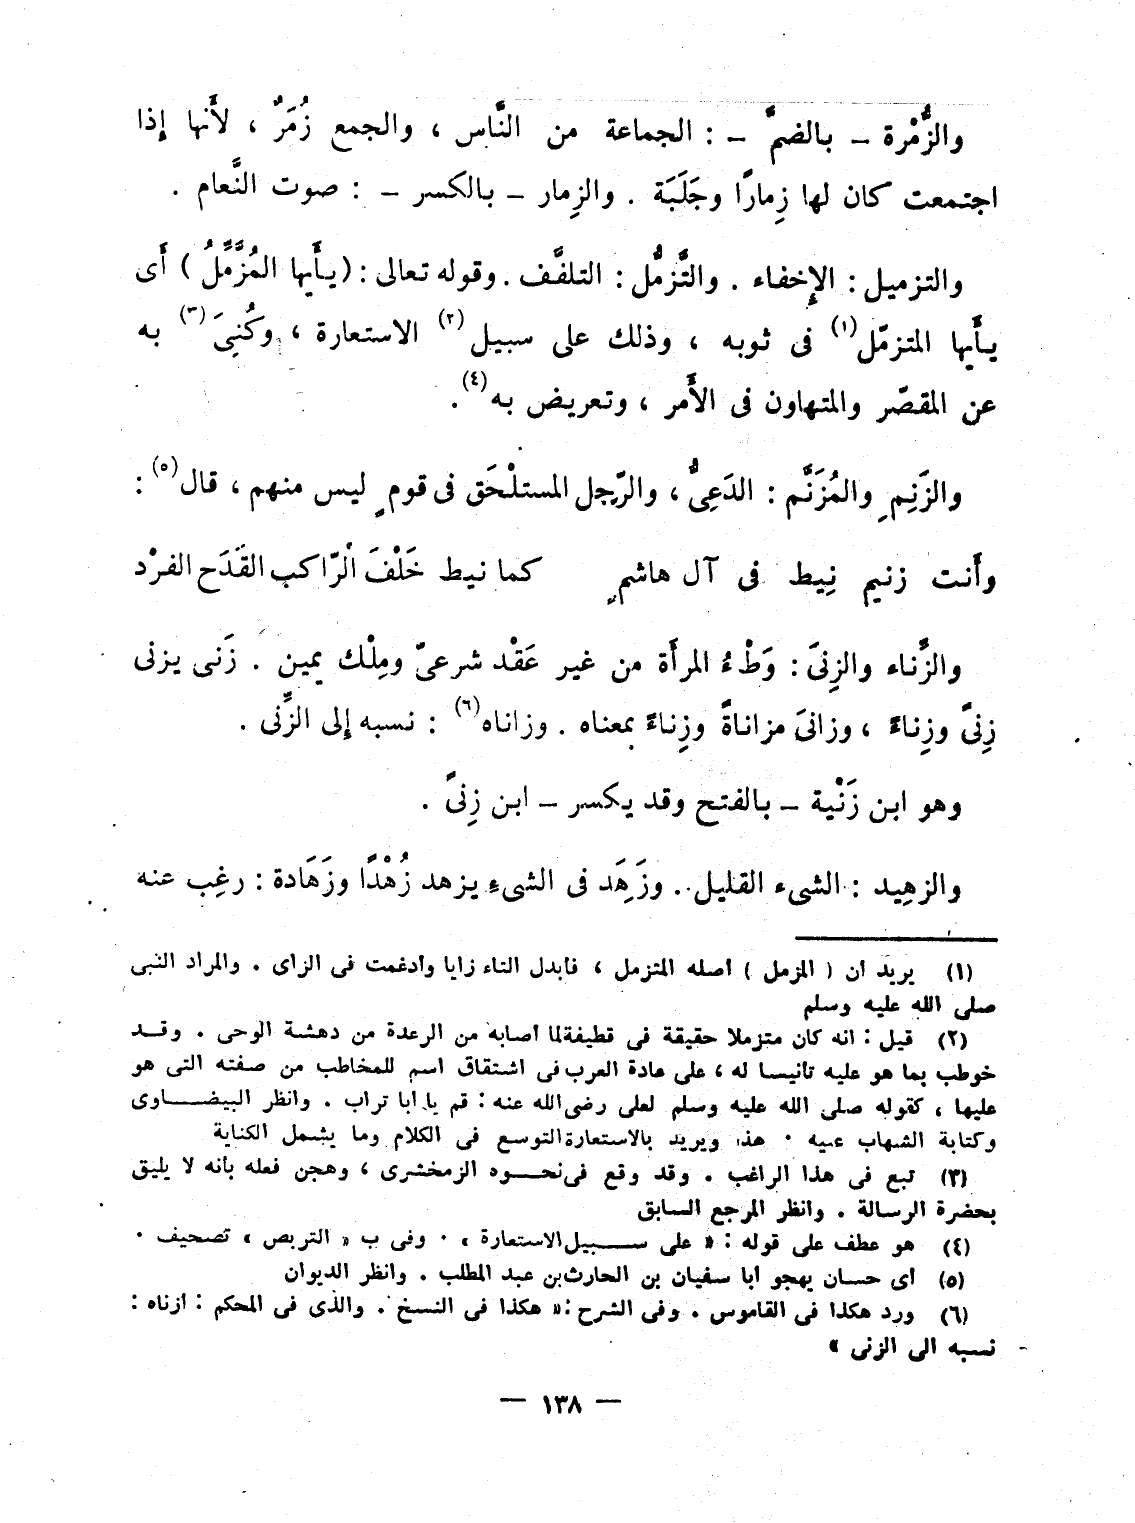 والزُّمْرة – بالضمّ – : الجماعة من النَّاس ، والجمع زُمَرٌ ، لأَنها إِذا
اجتمعت كان لها زِمارًا وجَلَبَة . والزِمار – بالكسر – : صوت النَّعام .
والتزميل : الإِخفاء . والتَّزمُّل : التلفَّف . وقوله تعالى : (يـأَيها المُزَّمِّلُ ) أَى
يـأَيها المتزمّل(١) فى ثوبه ، وذلك على سبيل(٢) الاستعارة ، وكُنِىَ(٣) به
عن المقصّر والمتهاون فى الأَمر ، وتعريض به(٤) .
والزَنِيم والمُزَنَّم : الدَعِىُّ ، والرّجل المستلْحَق فى قوم ليس منهم ، قال(٥) :
وأَنت زنيم نِيط فى آل هاشم كما نيط خَلْفَ الرّاكب القَدَح الفرْد
والزَّناء والزِنىَ : وَطْءُ المرأَة من غير عَقْد شرعىّ ومِلْك يمين . زَنـى يزنى
زِنىً وزِناءً ، وزانىَ مزاناةً وزِناءً بمعناه . وزاناه(٦) : نسبه إِلى الزِّنى .
وهو ابن زَنْية – بالفتح وقد يكسر – ابن زِنىً .
والزهِيد : الشىء القليل . وزَهِدَ فى الشىءِ يزهد زُهْدًا وزَهَادة : رغِب عنه
(١) يريد أن ( المزمل ) أصله المتزمل ، فأبدل التاء زايا وأدغمت فى الزاى . والمراد النبى
صلى الله عليه وسلم
(٢) قيل : انه كان متزملا حقيقة فى قطيفة لما أصابه من الرعدة من دهشة الوحى . وقـد
خوطب بما هو عليه تأنيسا له ، على عادة العرب فى اشتقاق اسم للمخاطب من صفته التى هو
عليها ، كقوله صلى الله عليه وسلم لعلى رضى الله عنه : قم يا أبا تراب . وانظر البيضـــاوى
وكتابة الشهاب عليه . هذا ويريد بالاستعارة التوسع فى الكلام وما يشمل الكناية
(٣) تبع فى هذا الراغب . وقد وقع فى نحـــوه الزمخشرى ، وهجن فعله بأنه لا يليق
بحضرة الرسالة . وانظر المرجع السابق
(٤) هو عطف على قوله : « على ســـبيل الاستعارة » . وفى ب « التربص » تصحيف .
(٥) أى حسان يهجو أبا سفيان بن الحارث بن عبد المطلب . وانظر الديوان
(٦) ورد هكذا فى القاموس . وفى الشرح : « هكذا فى النسخ . والذى فى المحكم : أزناه :
نسبه الى الزنى »
— ١٣٨ —